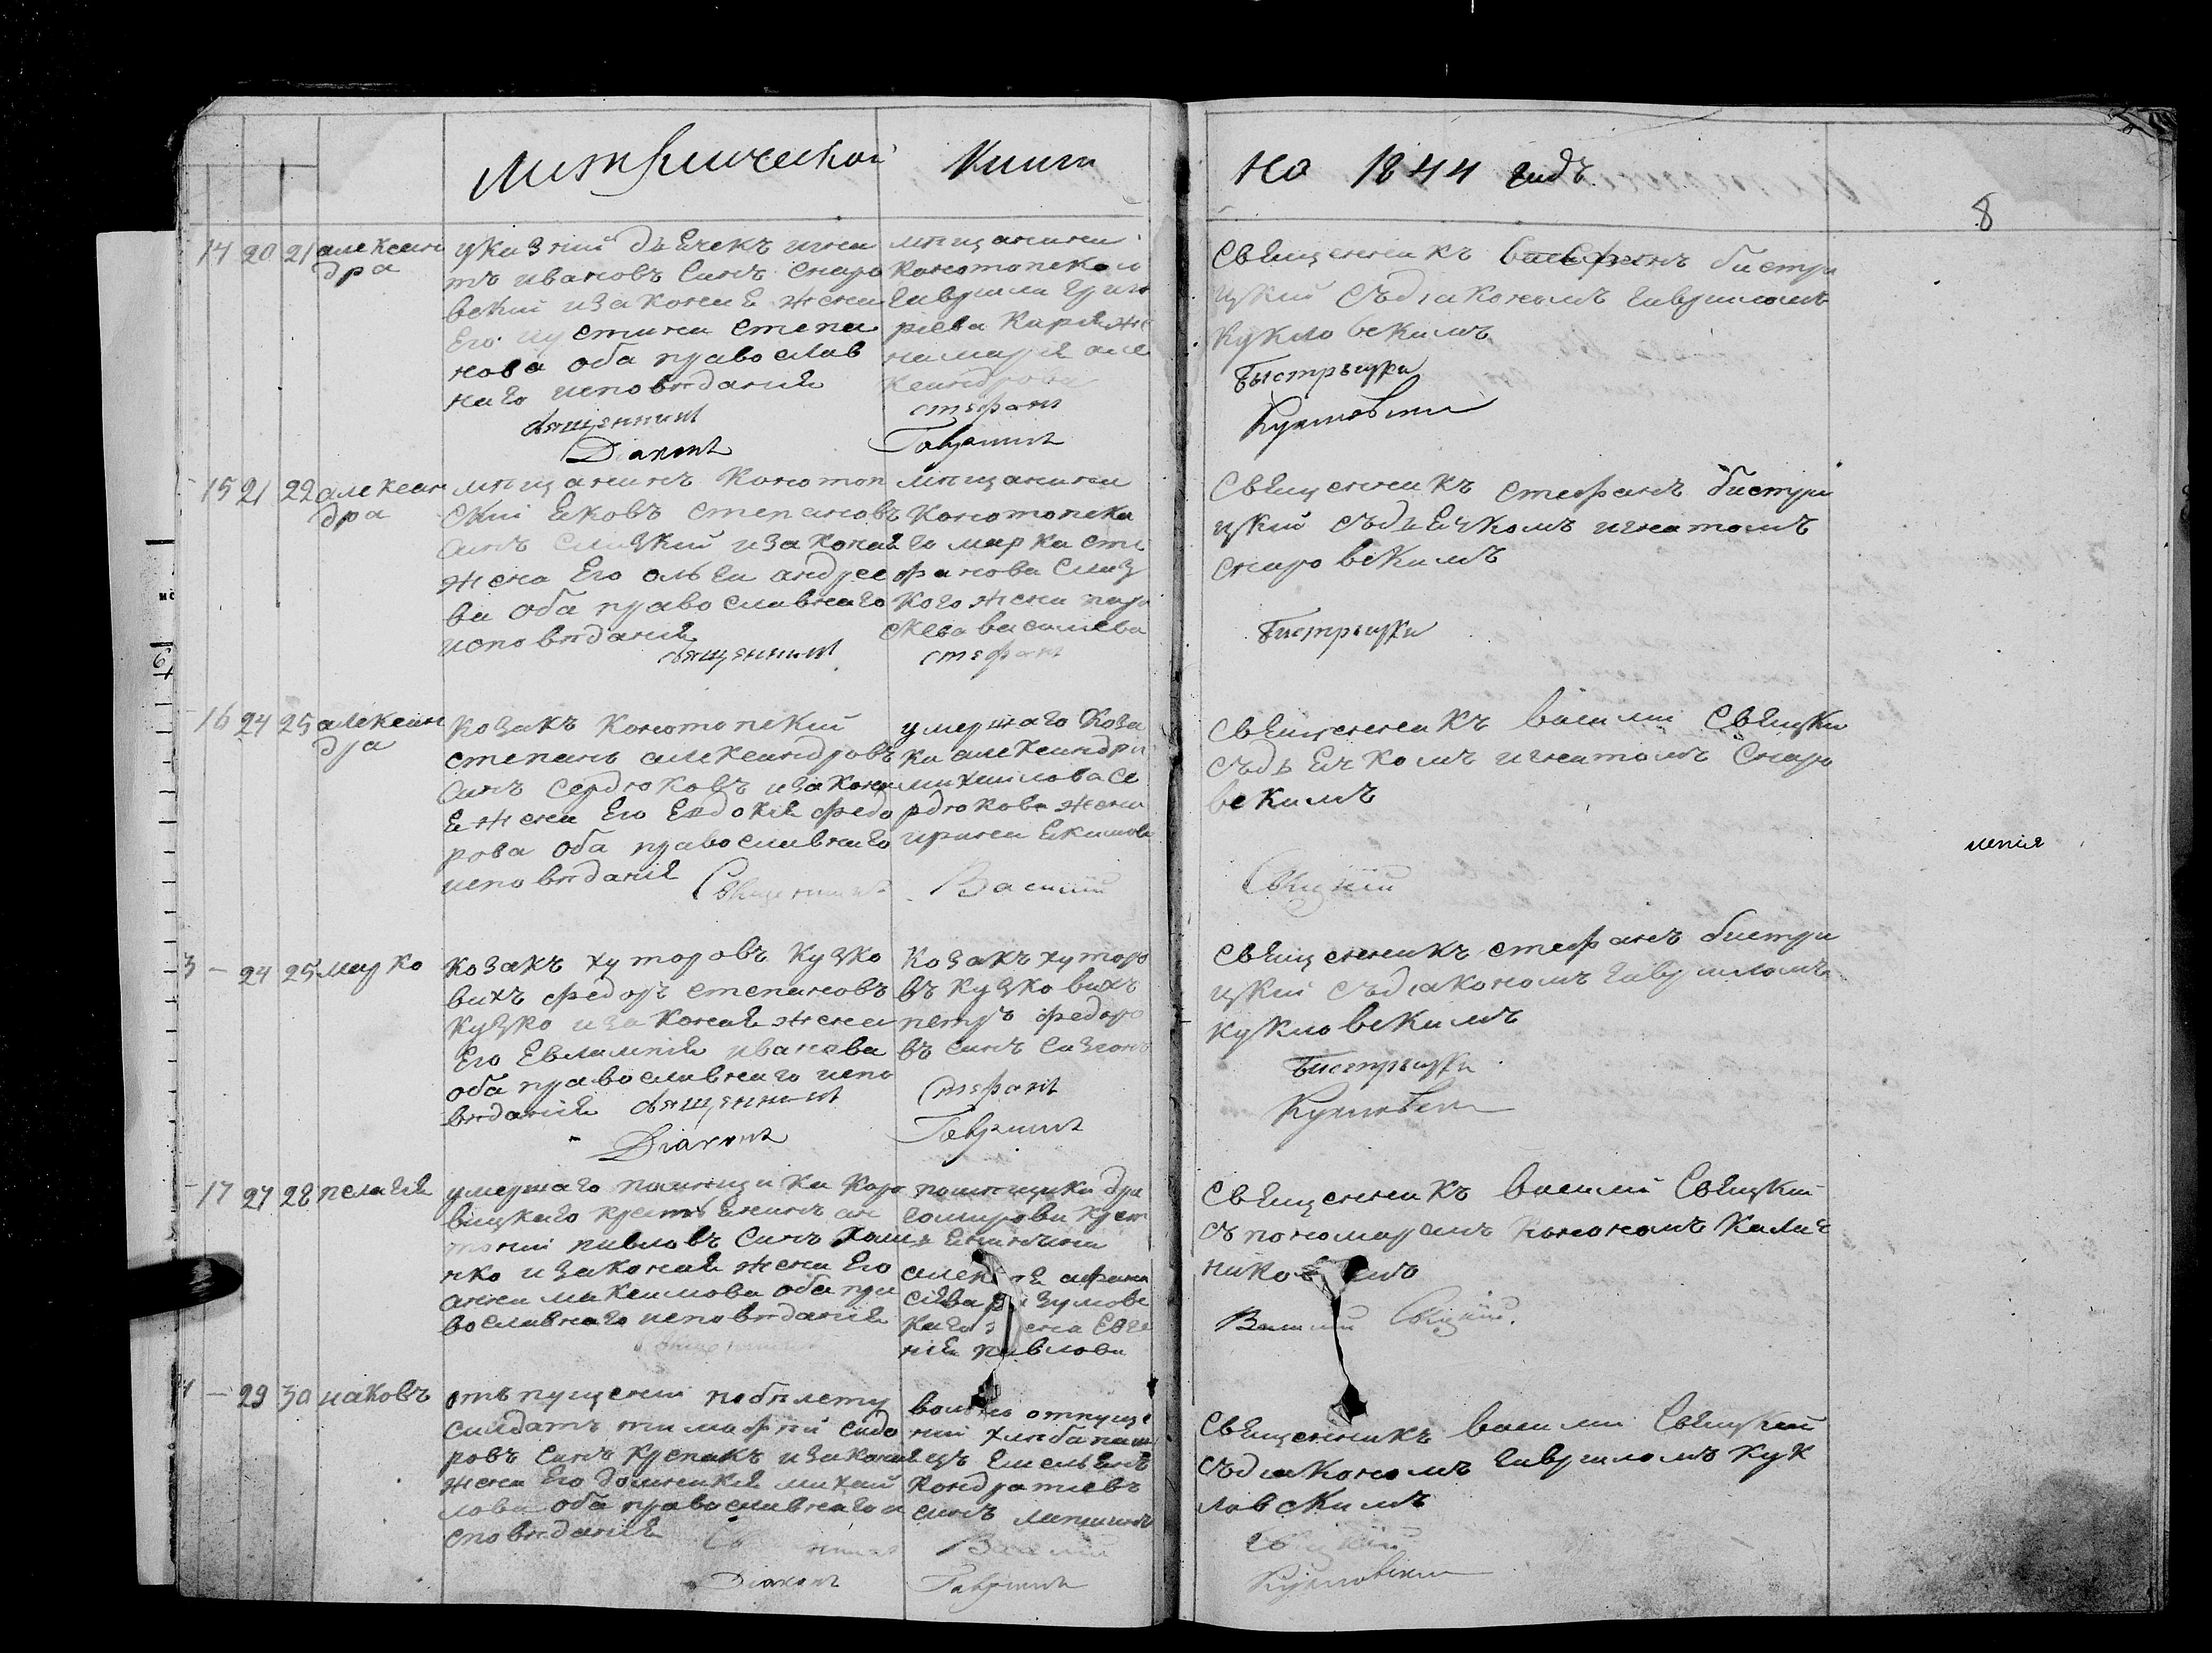 метрической книги
на 1844 годъ
8
14 20 21 алексан
дра
указний дьячекъ игна
тъ ивановъ синъ снаро
вский изаконая жена
его иустина степа
нова оба православ
наго исповѣданія
священникъ
Діаконъ
мѣщанина
конотопского
гаврила григо
риева карпѣ же
на марія але
ксандрова
стефанъ
Гавриилъ
священникъ стефанъ бистри
цкий съдіакономъ гавриломъ
кукловскимъ
Быстрыцки
Кукловски
15 21 22 алексан
дра
мѣщанинъ конотоп
ский яковъ степановъ
синъ слизкий изаконая
жена его ольга андрее
ва оба православнаго
исповѣданія
священникъ
мѣщанина
конотопска
го марка сте
фанова слиз
кого жена пара
скева василева
стефанъ
священникъ стефанъ бистри
цкий съдьячкомъ игнатомъ
снаровскимъ
Бистрыцки
16 24 25 алексан
дра
козакъ конотопский
степанъ александровъ
синъ сердюковъ изакона
я жена его евдокія федо
рова оба православнаго
исповѣданія
Священникъ
умершаго коза
ка александра
михаилова се
рдюкова жена
ирина якимова
Василий
священникъ василий свяцки
съдьячкомъ игнатомъ снаро
вскимъ
Свяцкій
3 - 24 25 марко
козакъ хуторовъ куцко
вихъ федоръ степановъ
куцко изаконая жена
его евлампія иванова
оба православнаго испо
вѣданія священникъ
Діаконъ
козакъ хуторо
въ куцковихъ
петръ федоро
въ синъ
Стефанъ
Гавриилъ
священникъ стефанъ бистри
цкий съдіакономъ гавриломъ
кукловскимъ
Бистрыцки
Кукловски
17 27 28 пелагія
умершаго помѣщика
вицкаго крестьянинъ ан
тоний павловъ синъ
нко изаконая жена его
анна максимова оба пра
вославнаго исповѣданія
помѣщика дра
гомирова крест
янина
алексѣя афана
сіева
каго жена евге
нія павлова
священникъ василий свяцкий
съ пономаремъ
Василий Свяцкій
4 - 29 30 иаковъ
отъпущений побилету
салдатъ тимофѣй сидо
ровъ синъ изаконая
жена его домникія михай
лова оба православнаго и
сповѣданія
Діаконъ
вольно отпуще
ний хлѣбопаш
ецъ емельянъ
кондратиевъ
синъ
Василий
Гавриилъ
священникъ василии свяцкий
съдиакономъ гавриломъ кук
ловскимъ
Свяцкій
Кукловски